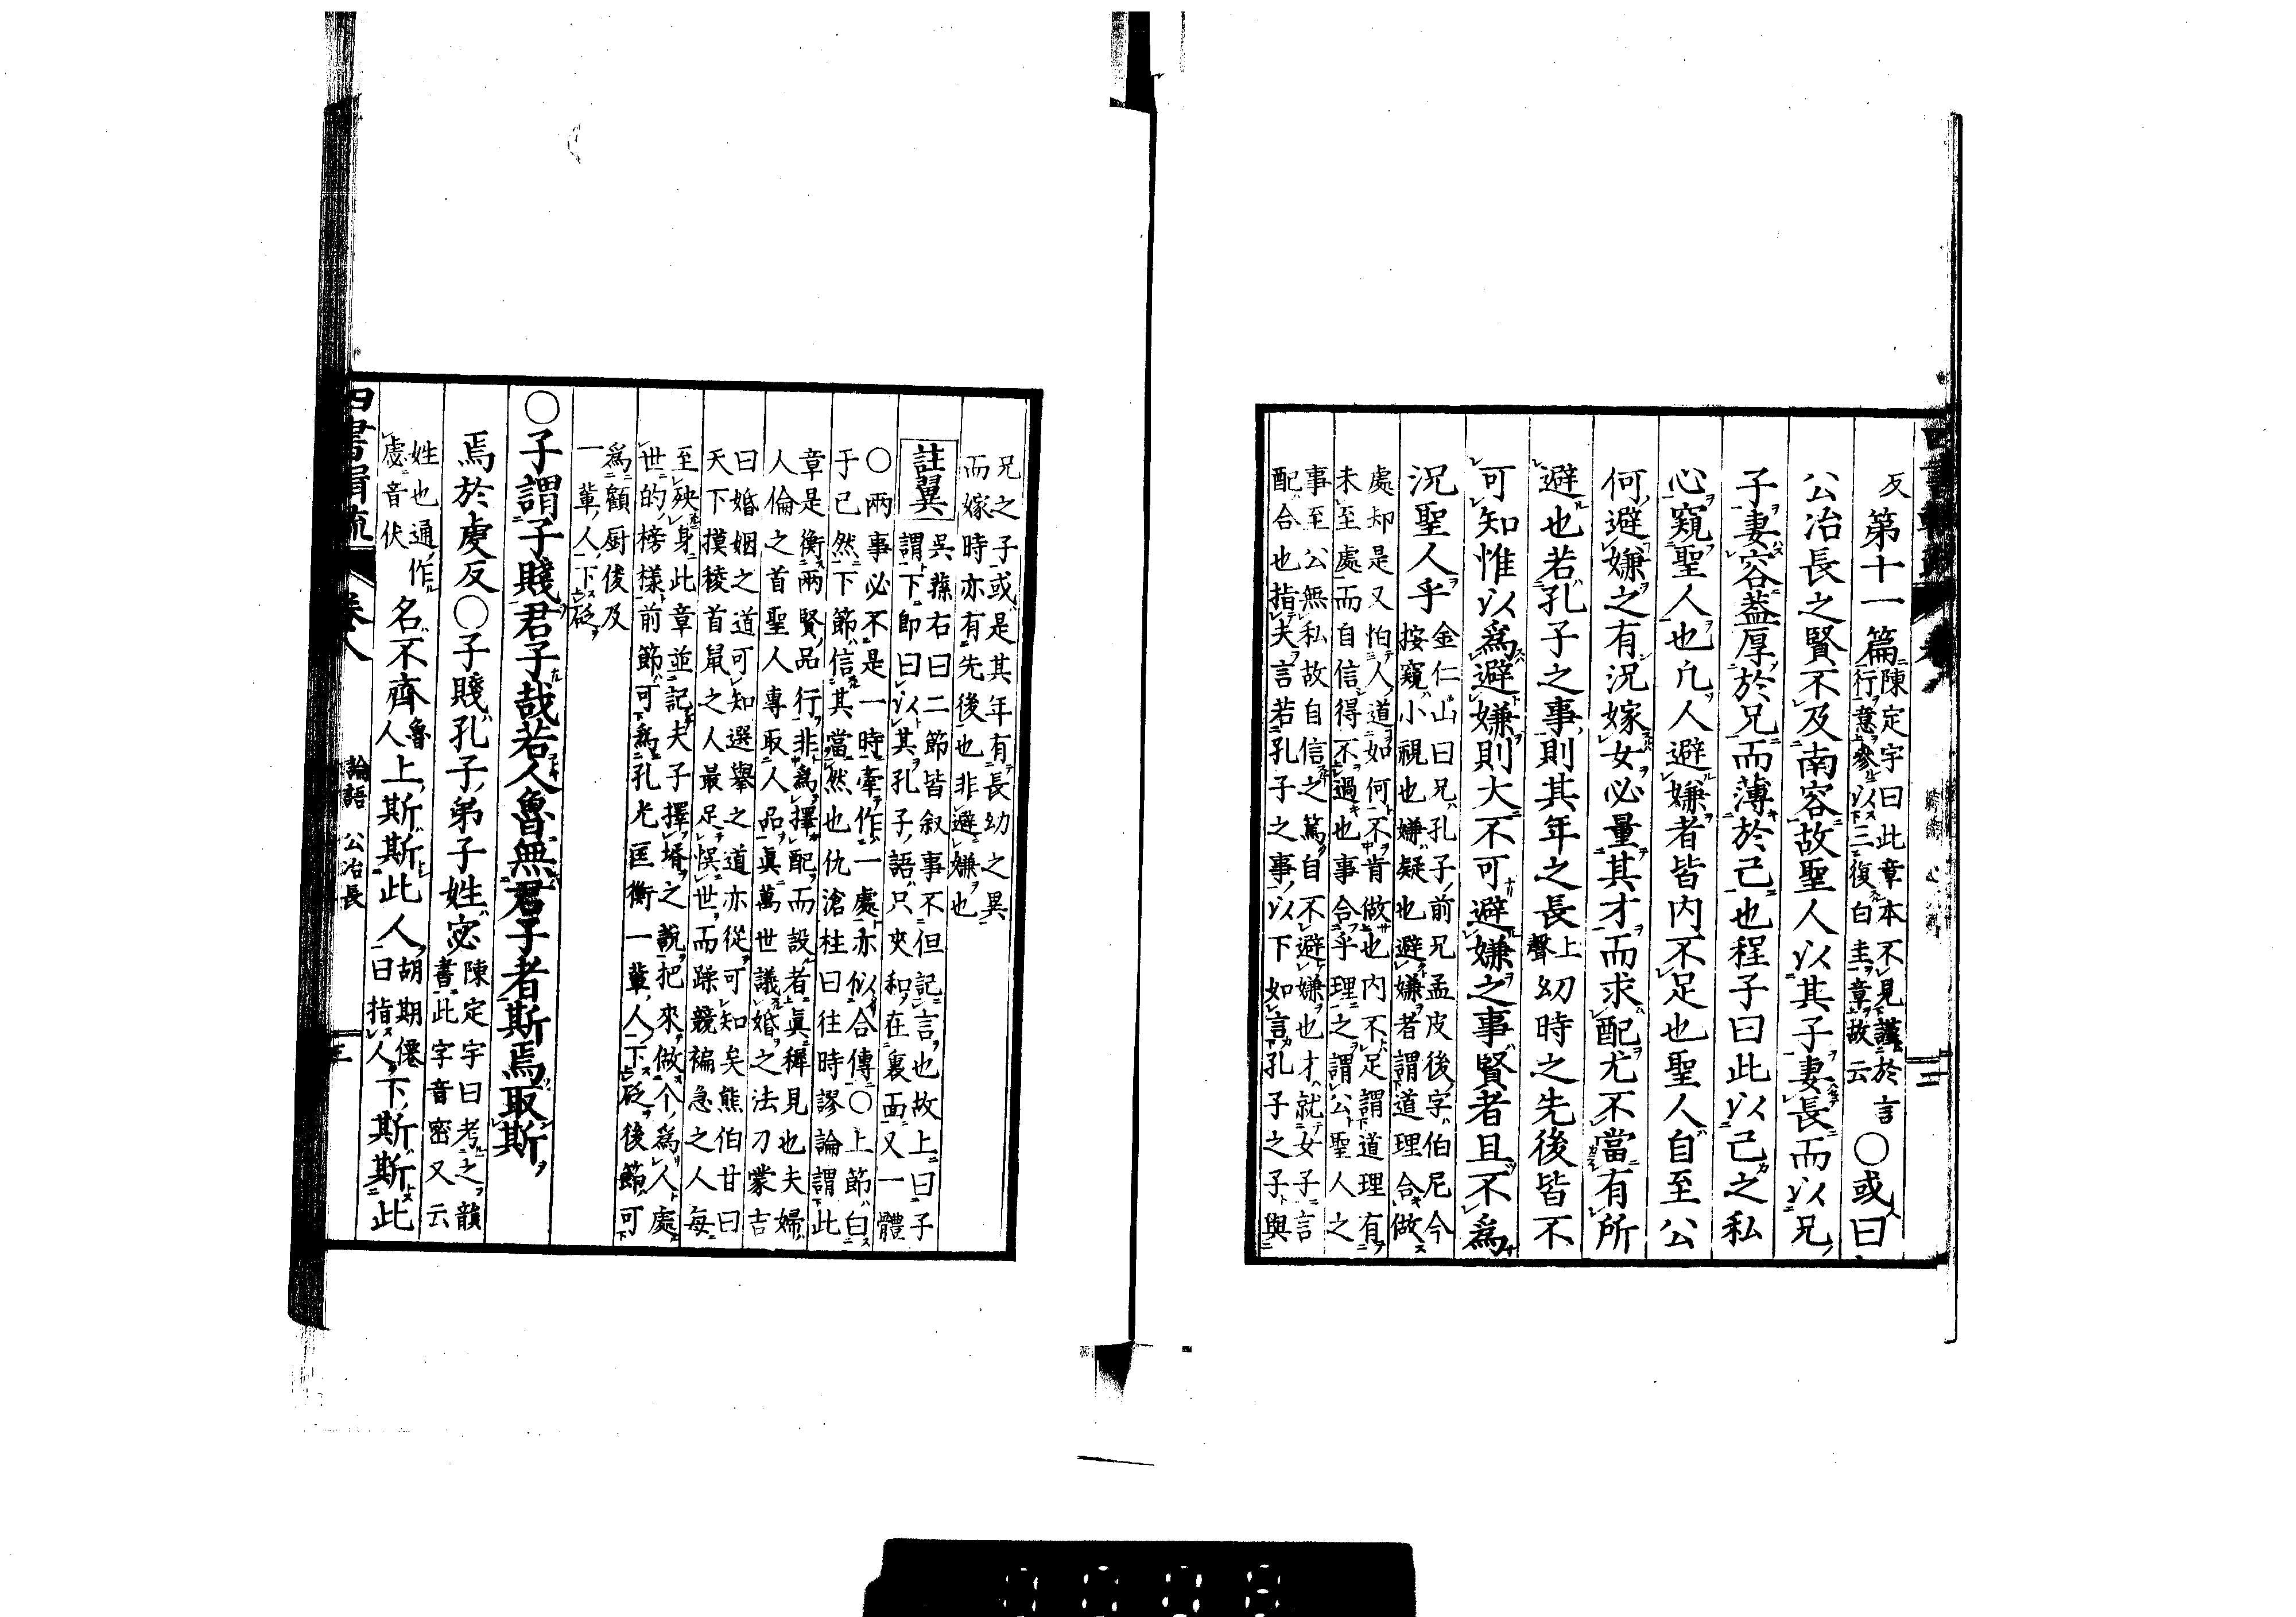 反第十一篇陳定宇曰此章本不見謹於言
行意參以三復白圭章故云○或曰
公冶長之賢不及南容故聖人以其子妻長而以兄
子妻容蓋厚於兄而薄於己也程子曰此以己之私
心窺聖人也凡人避嫌者皆內不足也聖人自至公
何避嫌之有況嫁女必量其才而求配尤不當有所
避也若孔子之事則其年之長上聲幼時之先後皆不
可知惟以爲避嫌則大不可避嫌之事賢者且不爲
況聖人乎金仁山曰兄孔子前兄孟皮後字伯尼今
按窺小視也嫌疑也避嫌者謂道理合做
處却是又怕人道如何不肯做也內不足謂道理有
未至處而自信得不過也事合乎理之謂公聖人之
事至公無私故自信之篤自不避嫌也才就女子言
配合也指夫言若孔子之事以下如言孔子之子與
兄之子或是其年有長幼之異
而嫁時亦有先後也非避嫌也
註翼吳蓀右曰二節皆叙事不但記言也故上曰子
謂下卽曰以其孔子語只夾和在裏面又一體
○兩事必不是一時牽作一處亦似合傳○上節曰
于已然下節信其當然也仇滄柱曰往時謬論謂此
章是衡兩賢品行非爲擇配而設者眞穉見也夫婦
人倫之首聖人專取人品眞萬世議婚之法刁蒙吉
曰婚姻之道可知選擧之道亦從可知矣熊伯甘曰
天下摸稜首鼠之人最足悞世而躁競褊急之人每
至殃身此章並記夫子擇壻之說把來做个爲人處
世的榜樣前節可爲孔光匡衡一輩人下砭後節可
爲顧厨俊及
一輩人下砭
○子謂子賤君子哉若人魯無君子者斯焉取斯
焉於虔反○子賤孔子弟子姓宓陳定宇曰考之韻
書此字音密又云
姓也通作
虙音伏名不齊魯人上斯斯此人胡期僊
曰指人下斯斯此
四書
卷八
論語 公冶長
三